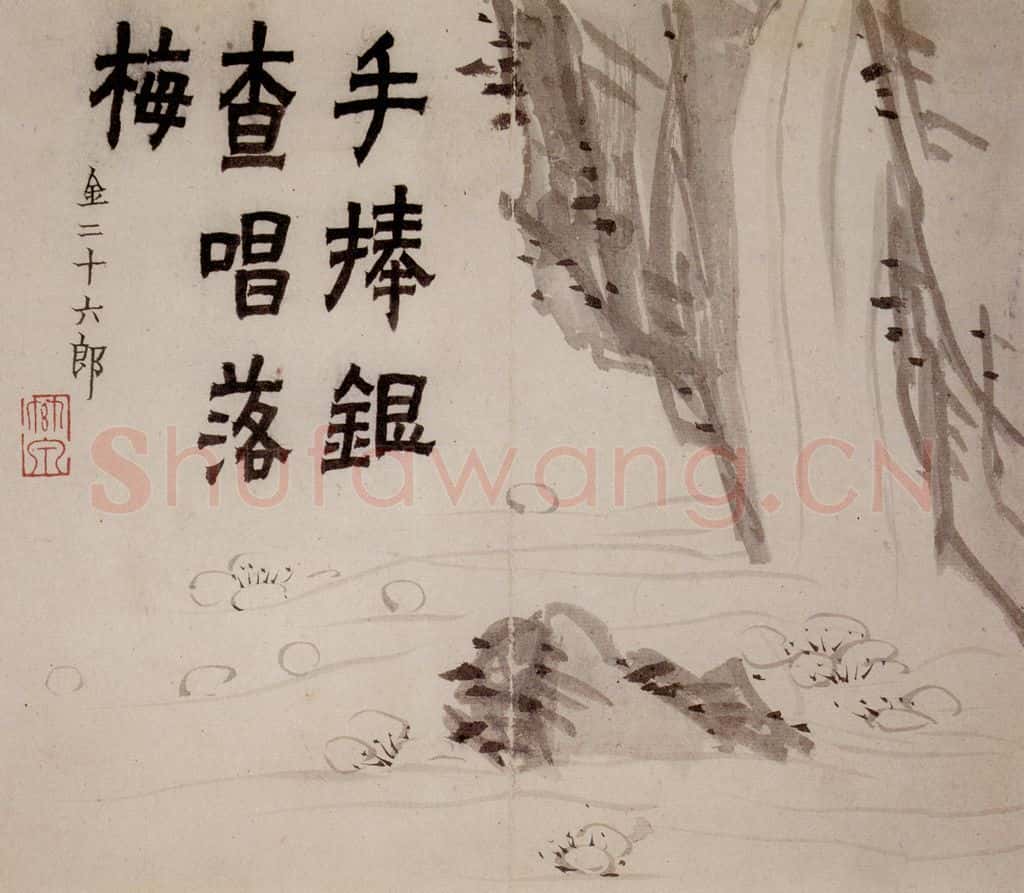 手捧銀
查唱落
梅
金二十六郎
Shufawang.CN